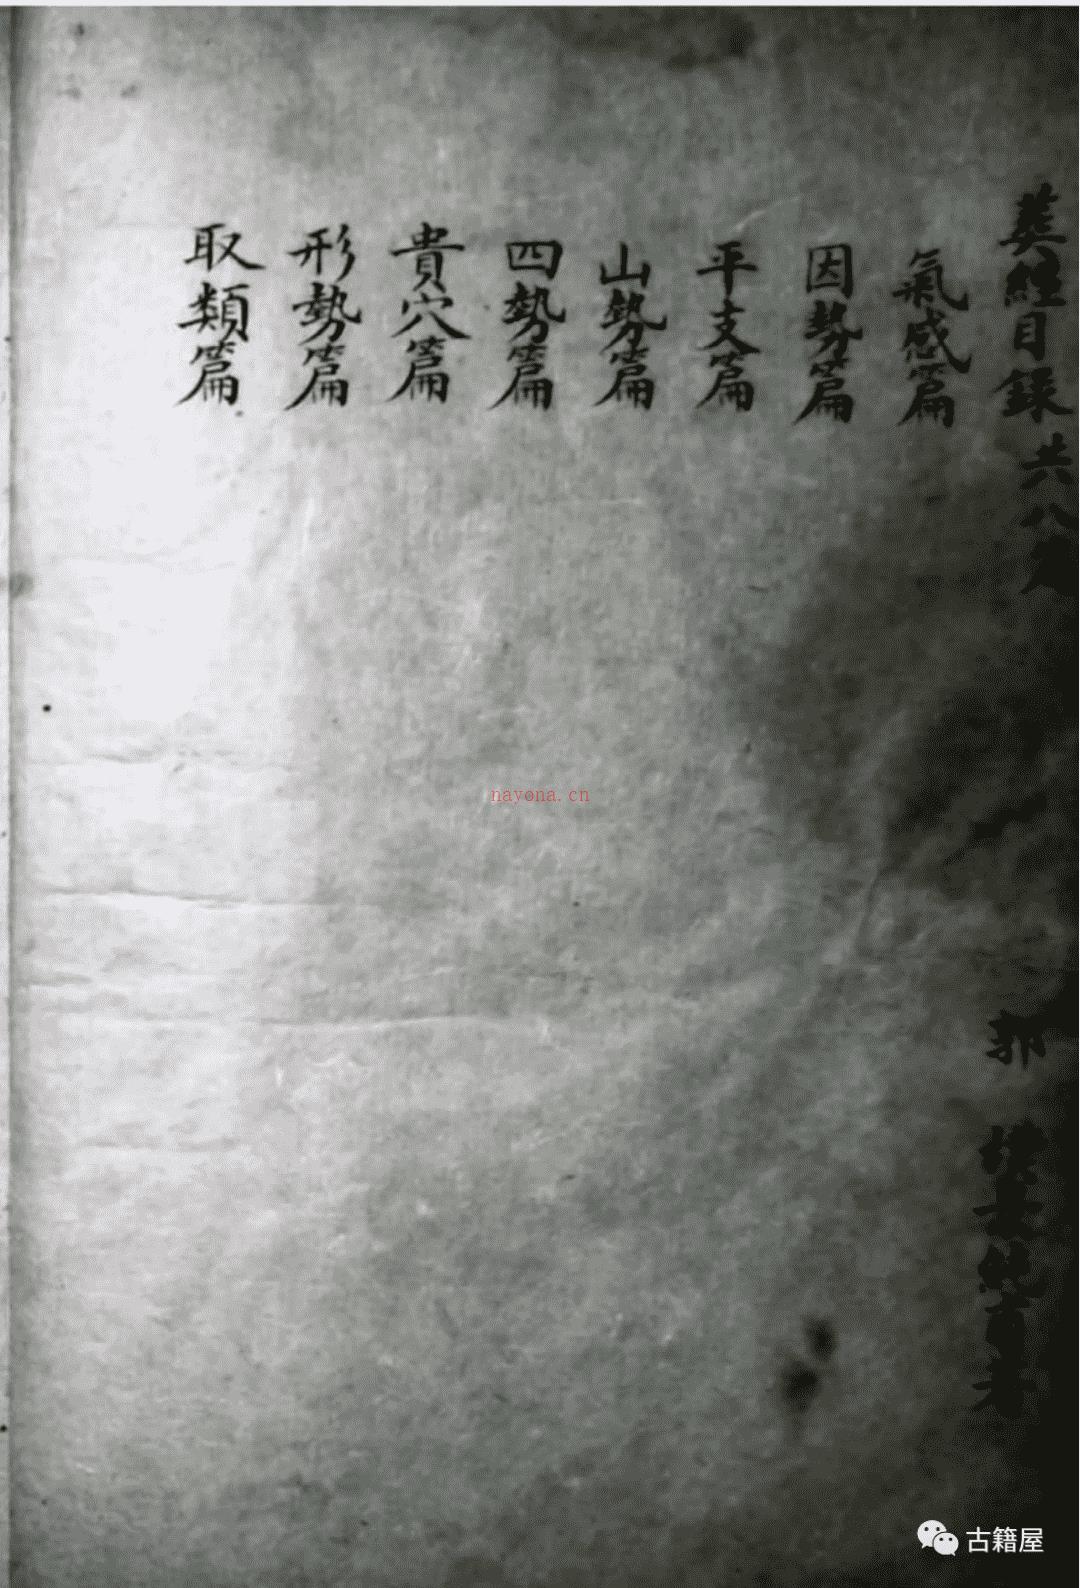 葬經目錄 共八
郭 璞
氣感篇
因勢篇
平支篇
山勢篇
四勢篇
貴穴篇
形勢篇
取類篇
nayona.cn
古籍屋